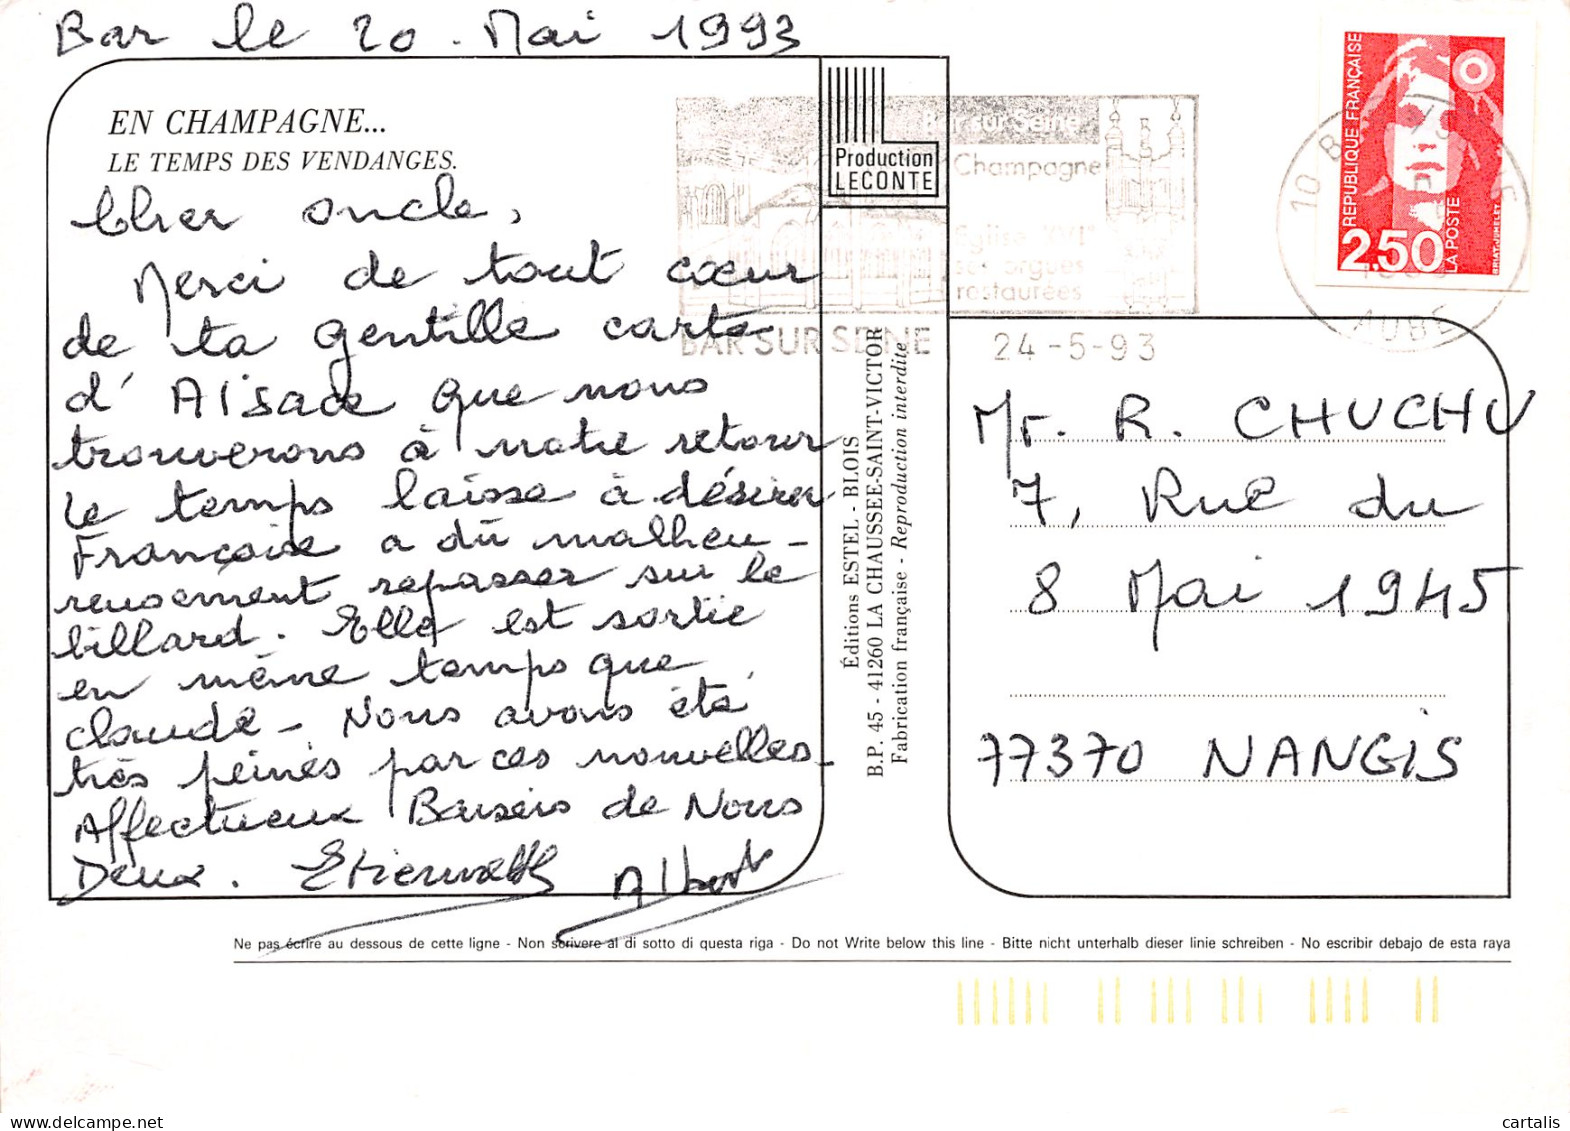 Bar le 20 . Mai 1993
EN CHAMPAGNE...
LE TEMPS DES VENDANGES.
Cher oncle,
Merci de tout cœur
de ta gentille carte
d'Alsace que nous
trouverons à notre retour
le temps laisse à désirer
Françoise a dû malheu-
reusement repasser sur le
billard. Elle est sortie
en même temps que
claude - Nous avons été
très peinés par ces nouvelles.
Affectueux Baisers de Nous
Deux. Albert
Production
LECONTE
Bar sur Seine
Champagne
Eglise XVIe
ses orgues
restaurées
BAR SUR SEINE
24-5-93
10
AUBE
RÉPUBLIQUE FRANÇAISE
2,50
LA POSTE
Éditions ESTEL - BLOIS
B.P. 45 - 41260 LA CHAUSSEE-SAINT-VICTOR
Fabrication française - Reproduction interdite
Mr. R. CHUCHU
7, Rue du
8 Mai 1945
77370 NANGIS
Ne pas écrire au dessous de cette ligne - Non scrivere al di sotto di questa riga - Do not Write below this line - Bitte nicht unterhalb dieser linie schreiben - No escribir debajo de esta raya
cartalis